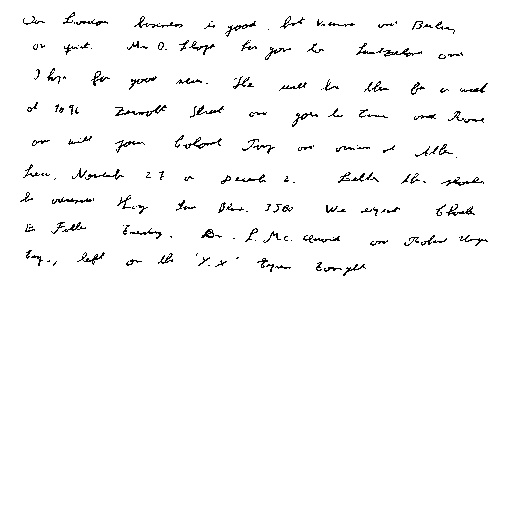 Our London business is good, but Vienna and Berlin
are quiet. Mr. D. Lloyd has gone to Switzerland and
I hope for good news. He will be there for a week
at 1496 Zermott Street and goes to Turin and Rome
and will join Colonel Parry and arrive at Athens,
Greece, November 27 or December 2. Letters there should
be addressed King James Blvd. 3580. We expect Charles
E. Fuller Tuesday. Dr. L. McQuaid and Robert Unger,
Esq., left on the 'Y.X.' Express tonight